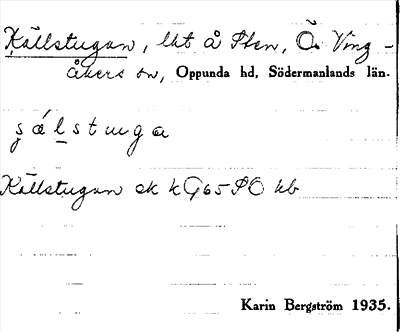 Källstugan, lht å Sten, Ö. Ving-
åkers sn, Oppunda hd, Södermanlands län.
şálstuga
Källstugan ek
Karin Bergström 1935.